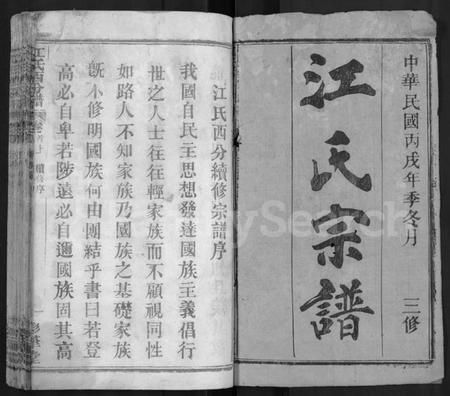 中華民國丙戌年季冬月
江氏宗譜
三修
江氏西分續修宗譜序
我國自民主思想發達國族主義倡行
世之人士往往輕家族而不顧視同性
如路人不知家族乃國族之基礎家族
旣不修明國族何由團結乎書曰若登
高必自卑若陟遠必自邇國族固其高
江氏西分譜